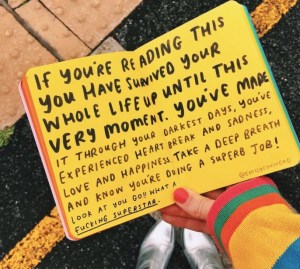 IF YOU'RE READING THIS
YOU HAVE SURVIVED YOUR
WHOLE LIFE UP UNTIL THIS
VERY MOMENT. YOU'VE MADE
IT THROUGH YOUR DARKEST DAYS, YOU'VE
EXPERIENCED HEARTBREAK AND SADNESS,
LOVE AND HAPPINESS. TAKE A DEEP BREATH
AND KNOW YOU'RE DOING A SUPERB JOB!
LOOK AT YOU GO!! WHAT A
FUCKING SUPERSTAR.